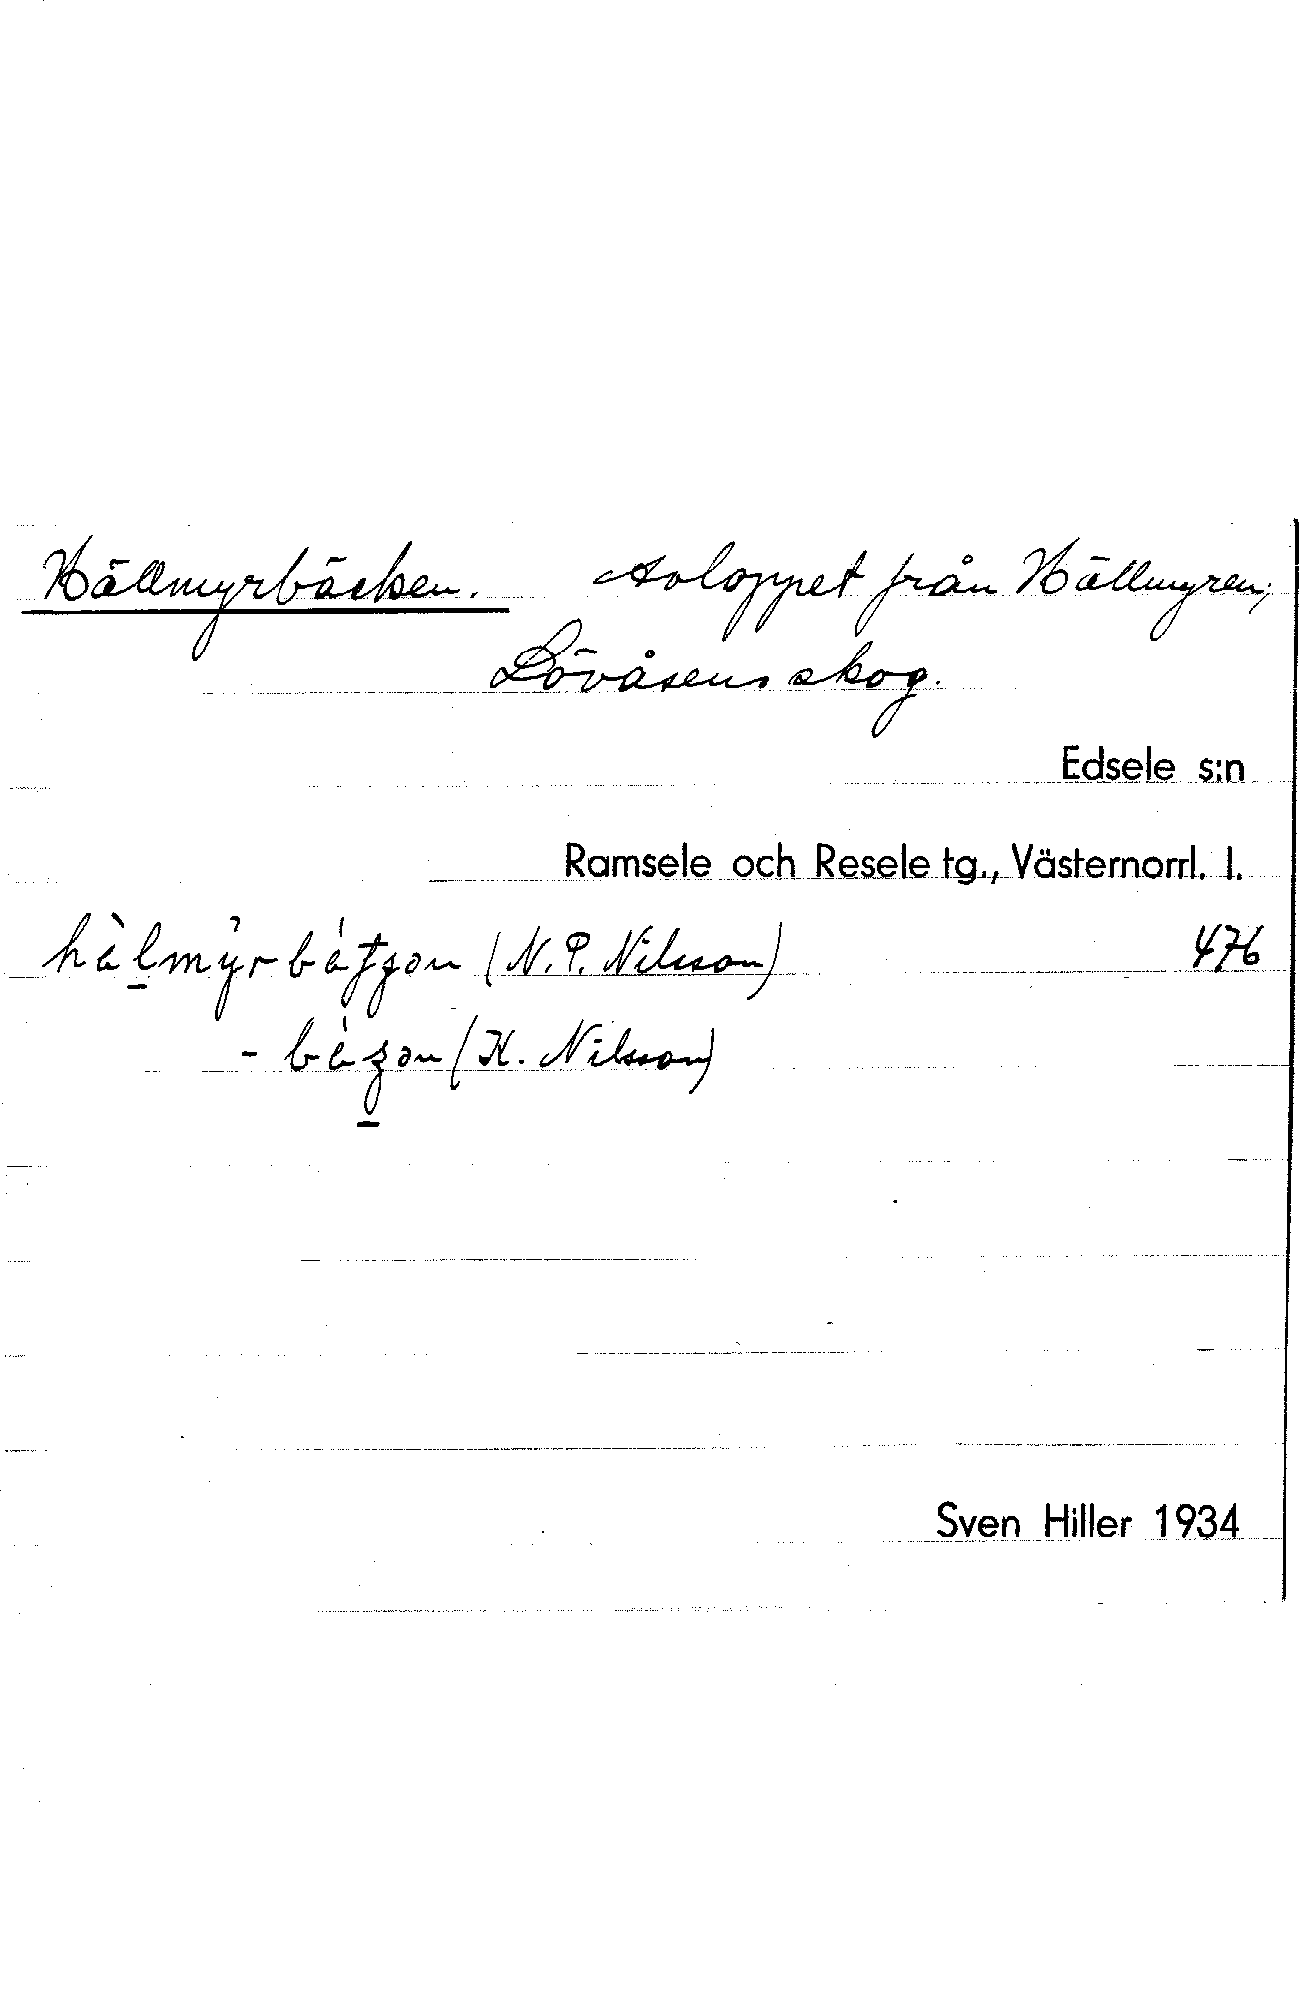 Hällmyrbäcken. Avloppet från Hällmyren,
Lövåsens skog.
Edsele s:n
Ramsele och Resele tg., Västernorrl. l.
(N. P. Nilsson) 476
(K. Nilsson)
Sven Hiller 1934